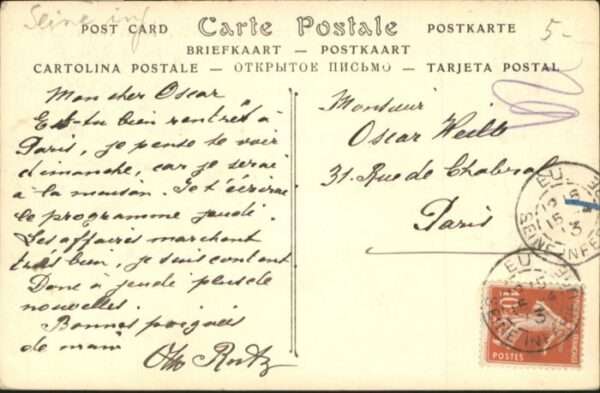 Seine inf
5-
POST CARD Carte Postale POSTKARTE
BRIEFKAART — POSTKAART
CARTOLINA POSTALE — ОТКРЫТОЕ ПИСЬМО — TARJETA POSTAL
Mon cher Oscar
Es-tu bien rentré à
Paris, je pense te voir
dimanche, car je serai
à la maison. Je t'écrirai
le programme jeudi.
Les affaires marchent
très bien, je suis content
Donc à jeudi plus de
nouvelles.
Bonnes poignées
de main
Otto
Monsieur
Oscar Weill
31. Rue de Chabrol
Paris
EU
15
3
SEINE INFRE
EU
15
3
SEINE INFRE
10
POSTES